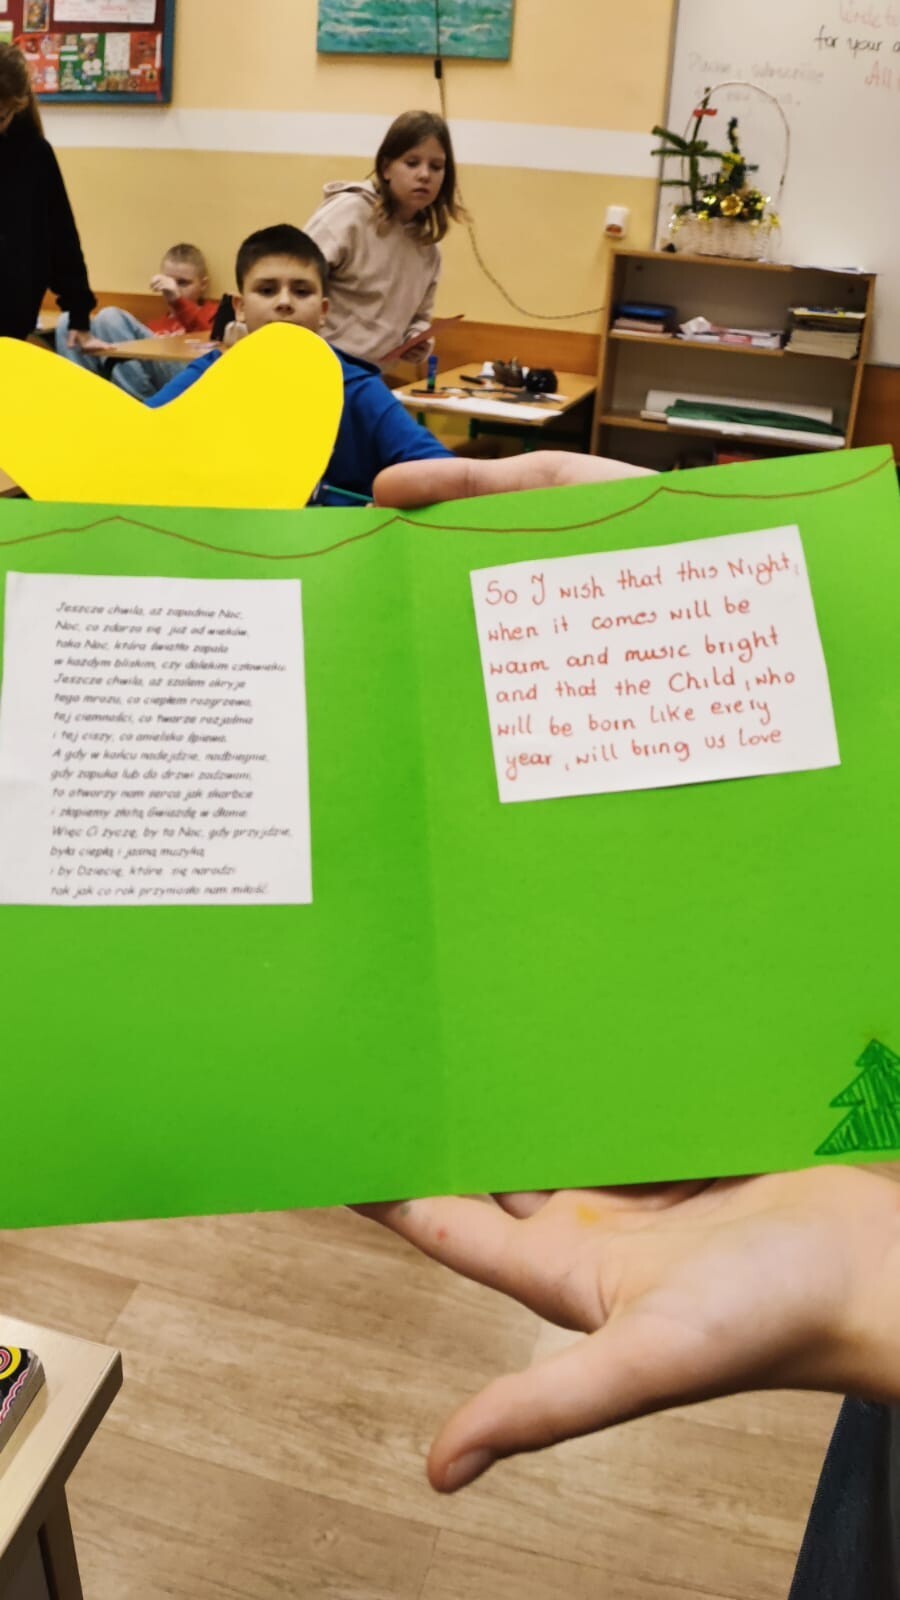 for your
Please, subscribe
All
Jeszcze chwila, aż zapadnie Noc,
Noc, co zdarza się już od wieków,
taka Noc, która światło zapala
w każdym bliskim, czy dalekim człowieku.
Jeszcze chwila, aż szalem okryje
tego mrozu, co ciepłem rozgrzewa,
tej ciemności, co twarze rozjaśnia
i tej ciszy, co anielsko śpiewa.
A gdy w końcu nadejdzie, nadbiegnie,
gdy zapuka lub do drzwi zadzwoni,
to otworzy nam serca jak skarbce
i złapiemy złotą Gwiazdę w dłonie.
Więc Ci życzę, by ta Noc, gdy przyjdzie,
była ciepłą i jasną muzyką
i by Dziecię, które się narodzi
tak jak co rok przyniosło nam miłość.
So I wish that this Night,
when it comes will be
warm and music bright
and that the Child, who
will be born like every
year, will bring us love